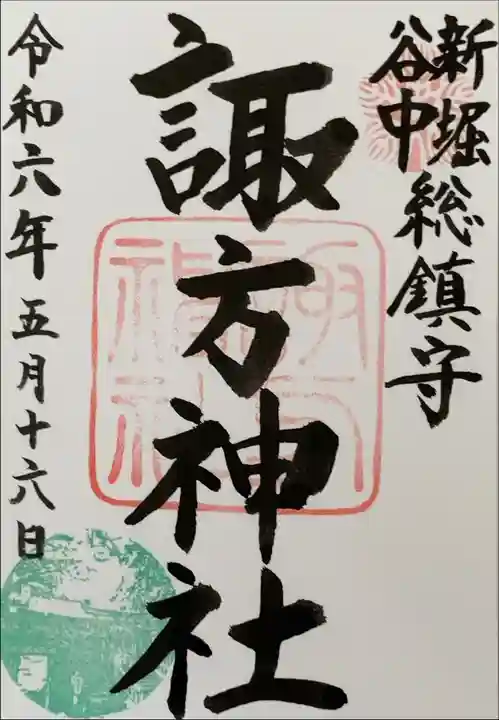 新堀
谷中
総鎮守
諏方神社
令和六年五月十六日